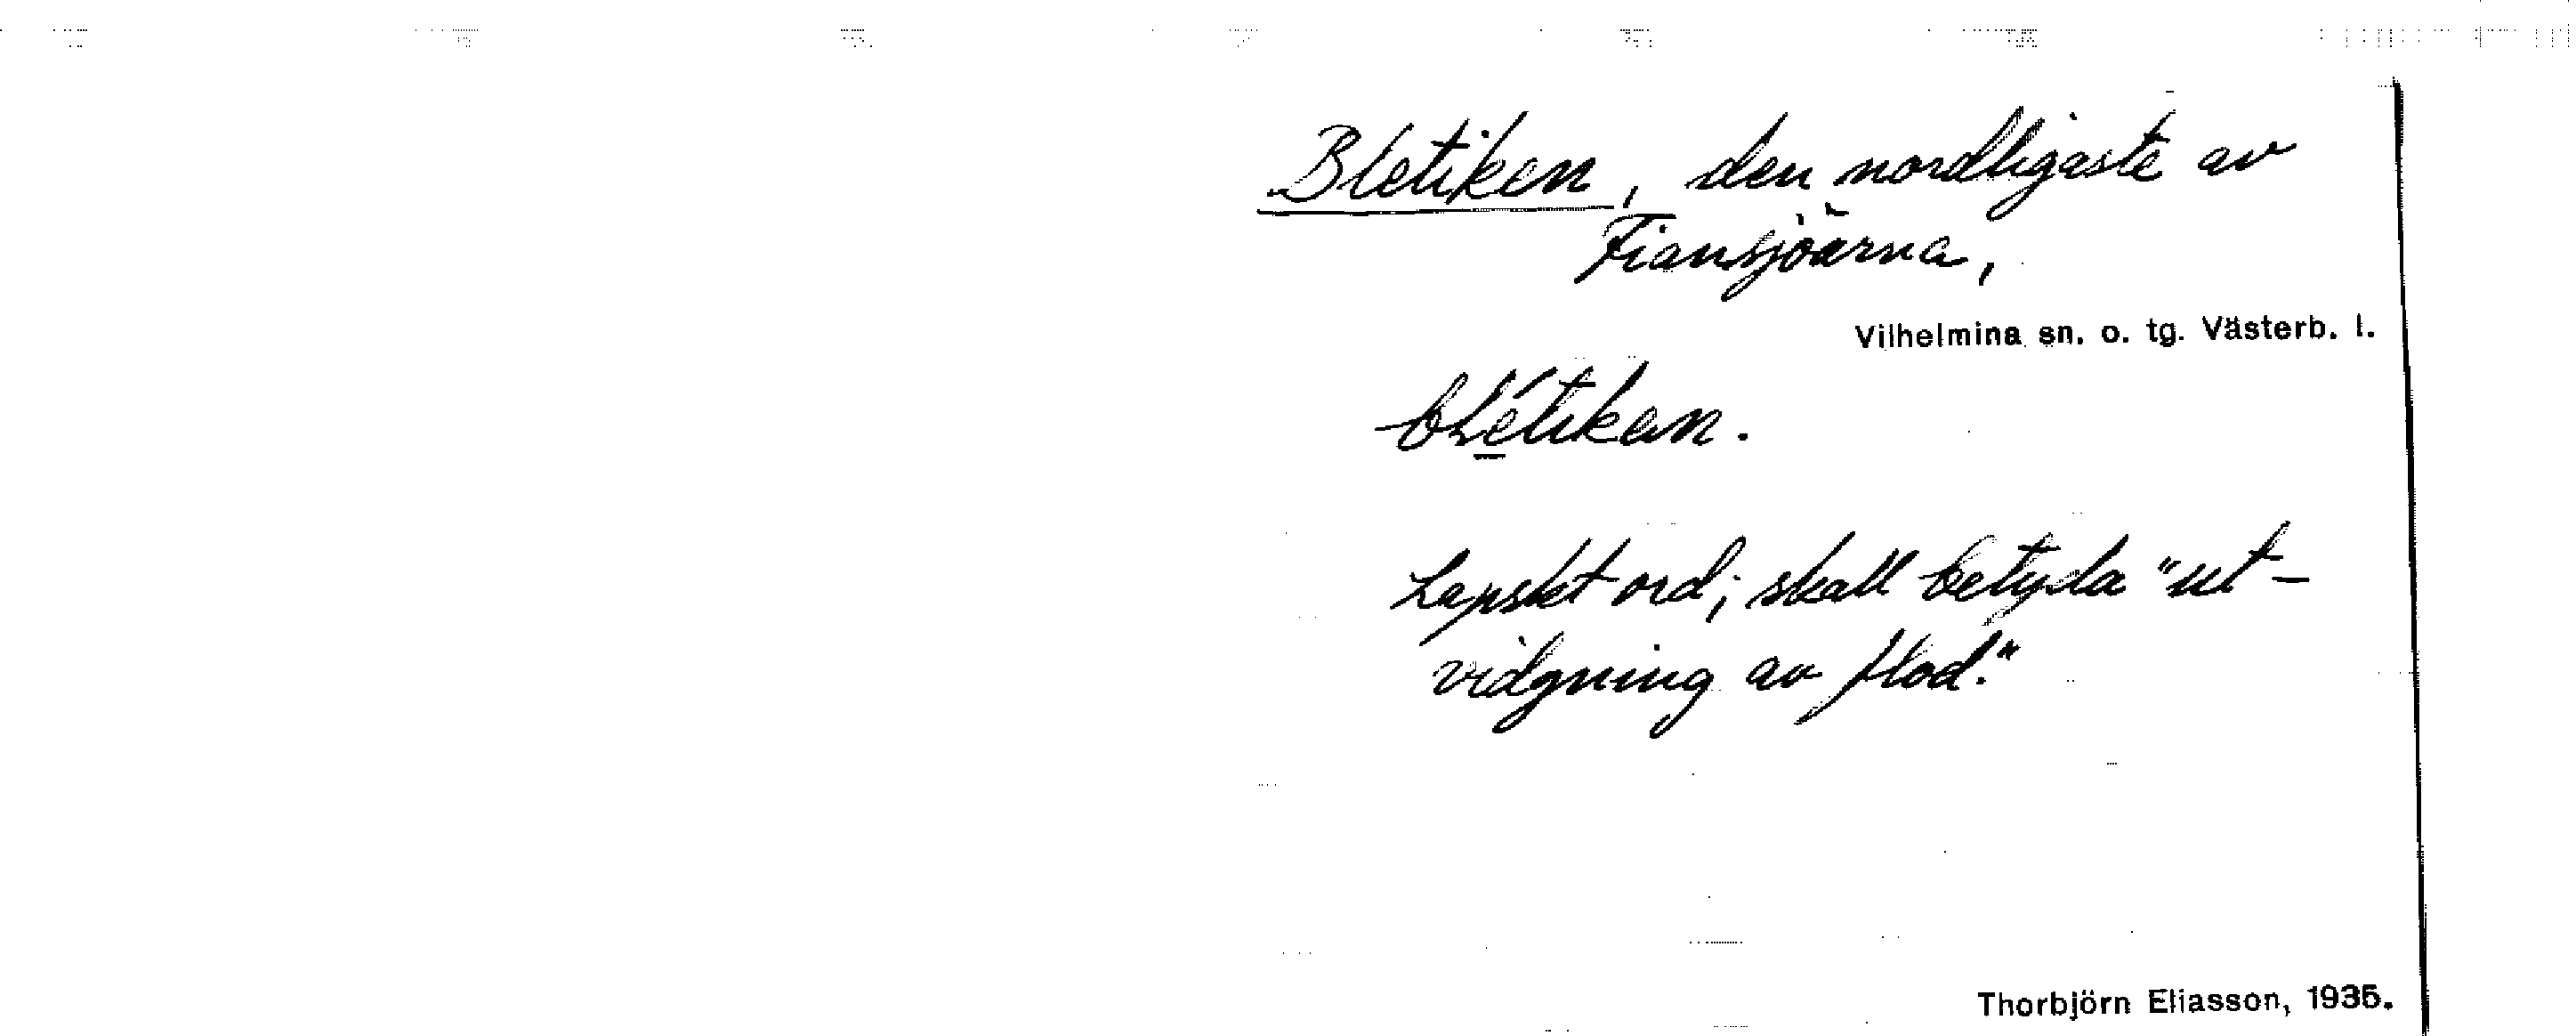 Bletiken, den nordligaste av
Fiansjöarna,
Vilhelmina sn. o. tg. Västerb. l.
blétikan.
Lapskt ord; skall betyda "ut-
vidgning av flod."
Thorbjörn Eliasson, 1935.